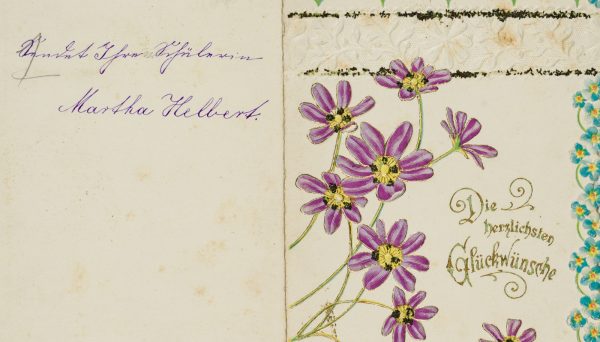 Sendet Ihre Schülerin
Martha Helbert.
Die
herzlichsten
Glückwünsche